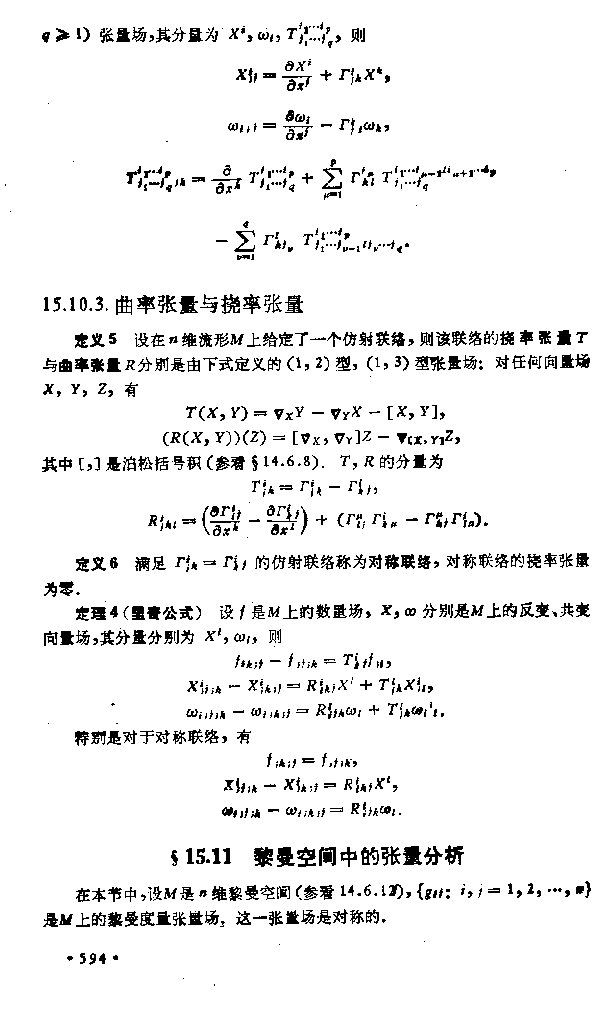 q ≥ 1) 张量场,其分量为 X^i, ω_i, T^{i_1⋯i_p}_{j_1⋯j_q}, 则
X^i_{;j} = ∂X^i/∂x^j + Γ^i_{jk}X^k,
ω_{i;j} = ∂ω_i/∂x^j − Γ^k_{ji}ω_k,
T^{i_1⋯i_p}_{j_1⋯j_q;k} = ∂/∂x^k T^{i_1⋯i_p}_{j_1⋯j_q} + ∑_{μ=1}^{p} Γ^{i_μ}_{kl} T^{i_1⋯i_{μ-1} l i_{μ+1}⋯i_p}_{j_1⋯j_q}
− ∑_{ν=1}^{q} Γ^l_{kj_ν} T^{i_1⋯i_p}_{j_1⋯j_{ν-1} l j_ν⋯j_q}.
15.10.3. 曲率张量与挠率张量
定义5 设在n维流形M上给定了一个仿射联络,则该联络的挠率张量T
与曲率张量R分别是由下式定义的 (1, 2) 型, (1, 3) 型张量场: 对任何向量场
X, Y, Z, 有
T(X, Y) = ∇_XY − ∇_YX − [X, Y],
(R(X, Y))(Z) = [∇_X, ∇_Y]Z − ∇_{[X,Y]}Z,
其中 [,] 是泊松括号积 (参看 §14.6.8). T, R 的分量为
T^i_{jk} = Γ^i_{jk} − Γ^i_{kj},
R^i_{jkl} = (∂Γ^i_{lj}/∂x^k − ∂Γ^i_{kj}/∂x^l) + (Γ^μ_{lj}Γ^i_{kμ} − Γ^μ_{kj}Γ^i_{lμ}).
定义6 满足 Γ^i_{jk} = Γ^i_{kj} 的仿射联络称为对称联络, 对称联络的挠率张量
为零.
定理4 (里奇公式) 设 f 是M上的数量场, X, ω 分别是M上的反变、共变
向量场,其分量分别为 X^i, ω_i, 则
f_{;k;j} − f_{;j;k} = T^l_{kj}f_{;l},
X^i_{;j;k} − X^i_{;k;j} = R^i_{lkj}X^l + T^l_{jk}X^i_{;l},
ω_{i;j;k} − ω_{i;k;j} = R^l_{ijk}ω_l + T^l_{jk}ω_{i;l}.
特别是对于对称联络, 有
f_{;k;j} = f_{;j;k},
X^i_{;j;k} − X^i_{;k;j} = R^i_{lkj}X^l,
ω_{i;j;k} − ω_{i;k;j} = R^l_{ijk}ω_l.
§15.11 黎曼空间中的张量分析
在本节中,设M是n维黎曼空间 (参看 14.6.12), {g_{ij}: i, j = 1, 2, ⋯, n}
是M上的黎曼度量张量场, 这一张量场是对称的.
•594•